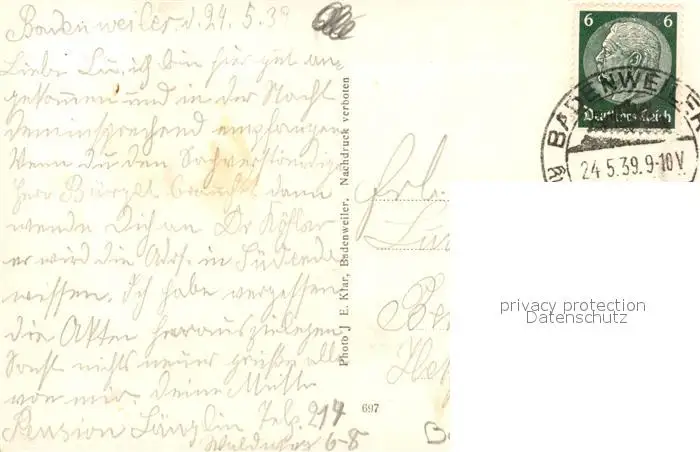 Badenweiler d. 24.5.39
Liebe Lu, ich bin hier gut an-
gekommen und in der Nacht
dementsprechend empfangen
Wenn du den Sachverständige
Herr Bürgel brauchst dann
wende Dich an Dr Köhler
er wird die Adrs. in Südende
wissen. Ich habe vergessen
die Akten herauszulegen
Sonst nichts neues grüße alle
von mir. Deine Mutti
Pension Länglin Telf. 214
Waldweg 6-8
Photo J. E. Klar, Badenweiler. Nachdruck verboten
697
6 6
Deutsches Reich
BADENWEILER
24.5.39.9-10V
Frl.
privacy protection
Datenschutz